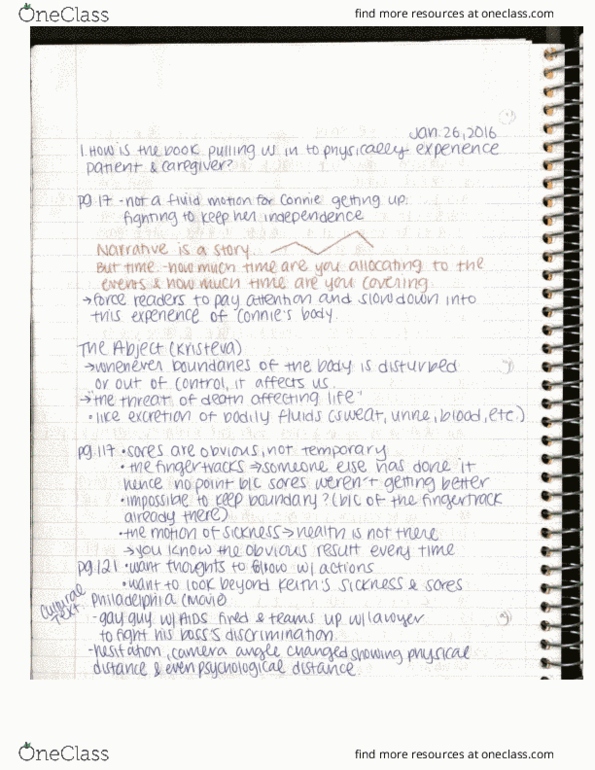 OneClass
find more resources at oneclass.com
Jan. 26, 2016
1. How is the book pulling us in to physically experience
patient & caregiver?
pg. 17 - not a fluid motion for Connie getting up.
fighting to keep her independence
Narrative is a story
But time - how much time are you allocating to the
events & how much time are you covering
→ force readers to pay attention and slow down into
this experience of Connie's body.
The Abject (Kristeva)
→ whenever boundaries of the body is disturbed
or out of control, it affects us.
→ "the threat of death affecting life"
• like excretion of bodily fluids (sweat, urine, blood, etc.)
pg. 117 • sores are obvious, not temporary
• the fingertracks → someone else has done it
hence no point b/c sores weren't getting better
• impossible to keep boundary? (b/c of the fingertrack
already there)
• the motion of sickness → health is not there
→ you know the obvious result every time
pg. 121 • want thoughts to follow w/ actions
• want to look beyond Keith's sickness & sores
Cultural Text
Philadelphia (Movie)
- gay guy w/ AIDS fired & teams up w/ lawyer
to fight his boss's discrimination.
- hesitation, camera angle changed showing physical
distance & even psychological distance.
OneClass
find more resources at oneclass.com